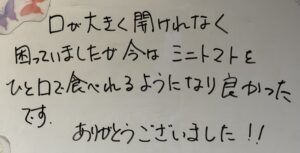 口が大きく開けれなく
困っていましたが今は ミニトマトを
ひと口で食べれるようになり良かった
です.
ありがとうございました!!